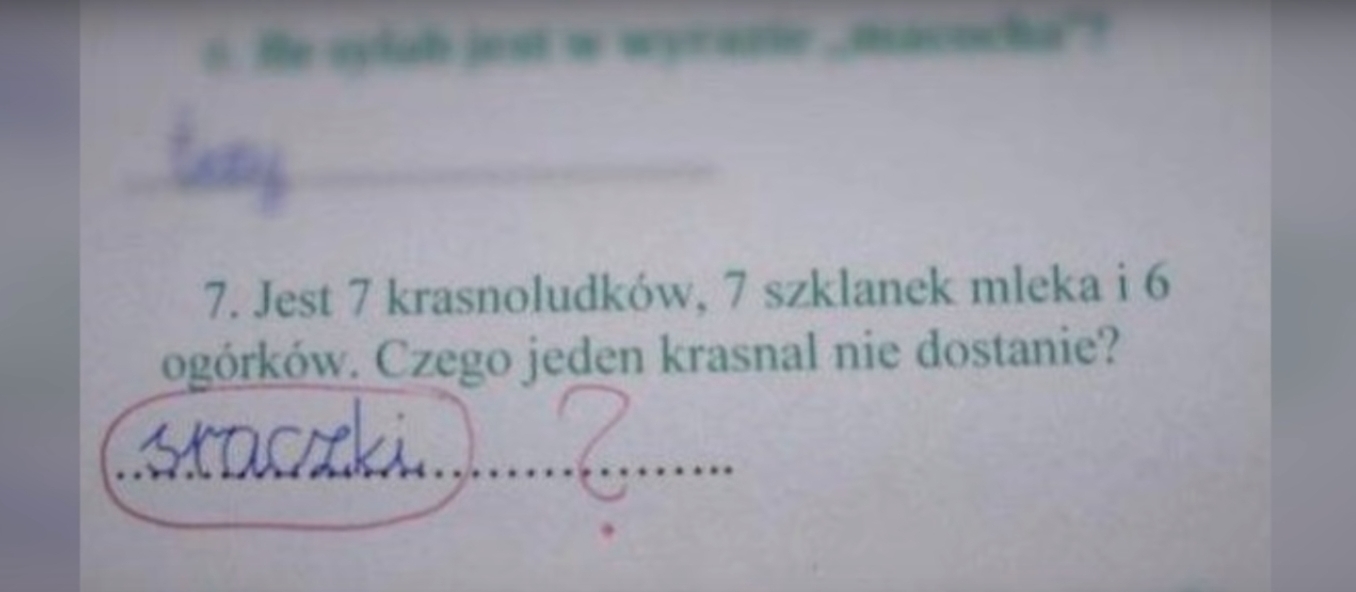 6. Ile sylab jest w wyrazie „macocha"?
trzy
7. Jest 7 krasnoludków, 7 szklanek mleka i 6
ogórków. Czego jeden krasnal nie dostanie?
sraczki ?